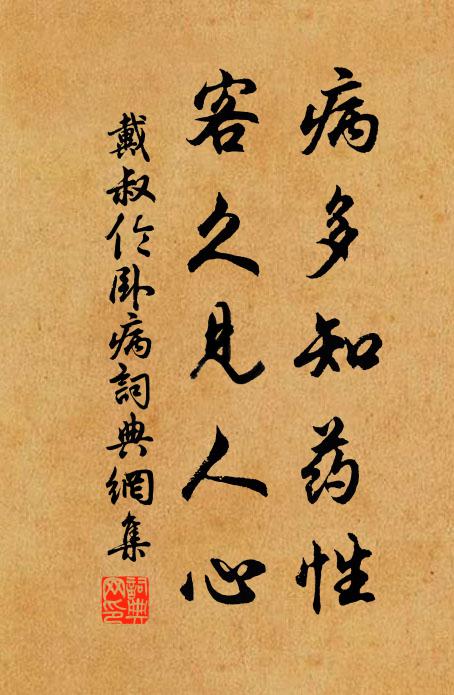 病多知药性
客久见人心
戴叔伦卧病詞典網集
詞典网印